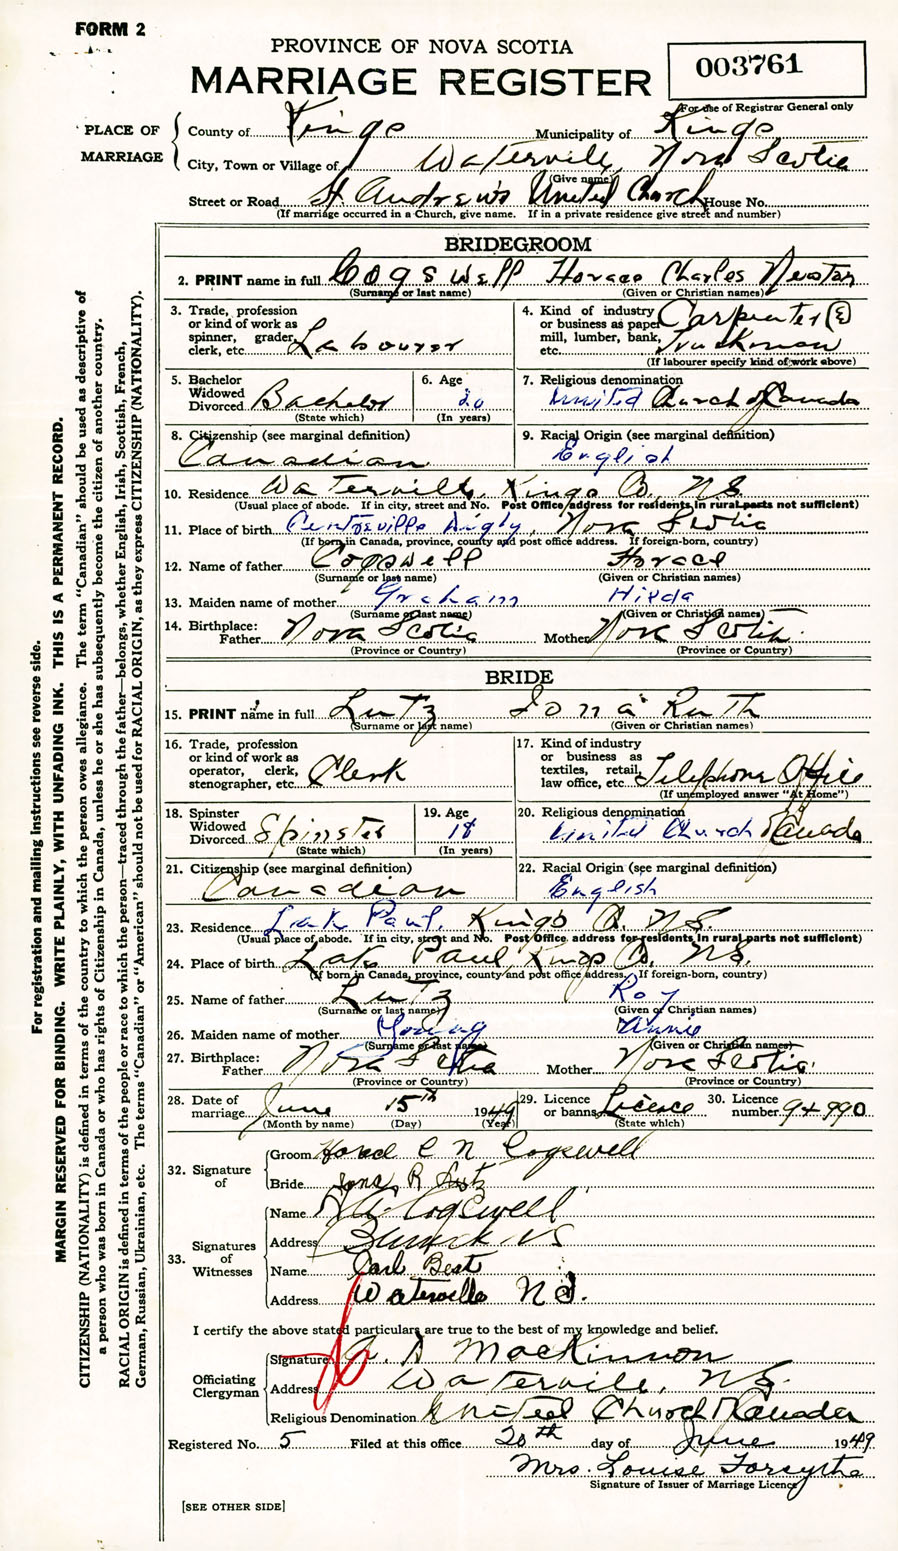 FORM 2
PROVINCE OF NOVA SCOTIA
MARRIAGE REGISTER
003761
(For use of Registrar General only
PLACE OF MARRIAGE
County of Kings Municipality of Kings
City, Town or Village of Waterville, Nova Scotia
(Give name)
Street or Road St. Andrew's United Church House No.
(If marriage occurred in a Church, give name. If in a private residence give street and number)
BRIDEGROOM
2. PRINT name in full Cogswell Horace Charles
(Surname or last name) (Given or Christian names)
3. Trade, profession or kind of work as spinner, grader, clerk, etc. Labourer
4. Kind of industry or business as paper mill, lumber, bank, etc. Carpenter & Truckman
(If labourer specify kind of work above)
5. Bachelor Widowed Divorced Bachelor
(State which)
6. Age 20
(In years)
7. Religious denomination United Church of Canada
8. Citizenship (see marginal definition) Canadian
9. Racial Origin (see marginal definition) English
10. Residence Waterville, Kings Co. NS
(Usual place of abode. If in city, street and No. Post Office address for residents in rural parts not sufficient)
11. Place of birth Centreville Digby, Nova Scotia
(If born in Canada, province, county and post office address. If foreign-born, country)
12. Name of father Cogswell Horace
(Surname or last name) (Given or Christian names)
13. Maiden name of mother Graham Hilda
(Surname or last name) (Given or Christian names)
14. Birthplace: Father Nova Scotia Mother Nova Scotia
(Province or Country) (Province or Country)
BRIDE
15. PRINT name in full Lutz Iona Ruth
(Surname or last name) (Given or Christian names)
16. Trade, profession or kind of work as operator, clerk, stenographer, etc. Clerk
17. Kind of industry or business as textiles, retail, law office, etc. Telephone Office
(If unemployed answer "At Home")
18. Spinster Widowed Divorced Spinster
(State which)
19. Age 18
(In years)
20. Religious denomination United Church Canada
21. Citizenship (see marginal definition) Canadian
22. Racial Origin (see marginal definition) English
23. Residence Lake Paul, Kings Co. NS.
(Usual place of abode. If in city, street and No. Post Office address for residents in rural parts not sufficient)
24. Place of birth Lake Paul Kings Co. NS.
(If born in Canada, province, county and post office address. If foreign-born, country)
25. Name of father Lutz Roy
(Surname or last name) (Given or Christian names)
26. Maiden name of mother Young Annie
(Surname or last name) (Given or Christian names)
27. Birthplace: Father Nova Scotia Mother Nova Scotia
(Province or Country) (Province or Country)
28. Date of marriage June 15th 1949
(Month by name) (Day) (Year)
29. Licence or banns Licence
(State which)
30. Licence number 94990
32. Signature of
Groom Horace C N Cogswell
Bride Iona R Lutz
33. Signatures of Witnesses
Name Cogswell
Address Berwick NS
Name Carl Best
Address Waterville NS.
I certify the above stated particulars are true to the best of my knowledge and belief.
Officiating Clergyman
Signature A. D MacKinnon
Address Waterville, NS.
Religious Denomination United Church Canada
Registered No. 5 Filed at this office 20th day of June 1949
Mrs. Louise Forsythe
Signature of Issuer of Marriage Licence
[SEE OTHER SIDE]
For registration and mailing instructions see reverse side.
MARGIN RESERVED FOR BINDING. WRITE PLAINLY, WITH UNFADING INK. THIS IS A PERMANENT RECORD.
CITIZENSHIP (NATIONALITY) is defined in terms of the country to which the person owes allegiance. The term "Canadian" should be used as descriptive of
a person who was born in Canada or who has rights of Citizenship in Canada, unless he or she has subsequently become the citizen of another country.
RACIAL ORIGIN is defined in terms of the people or race to which the person—traced through the father—belongs, whether English, Irish, Scottish, French,
German, Russian, Ukrainian, etc. The terms "Canadian" or "American" should not be used for RACIAL ORIGIN, as they express CITIZENSHIP (NATIONALITY).